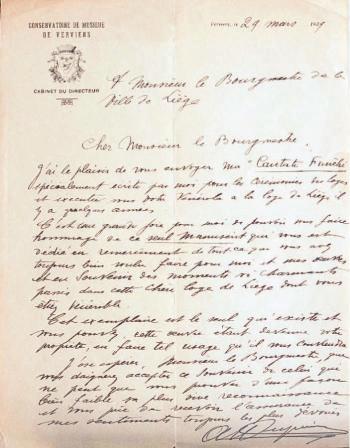 CONSERVATOIRE DE MUSIQUE
DE VERVIERS
CABINET DU DIRECTEUR
Verviers, le 29 mars 19
A Monsieur le Bourgmestre de la
Ville de Liége
Cher Monsieur le Bourgmestre,
J'ai le plaisir de vous envoyer ma "Cantate Funèbre
spécialement écrite par moi pour les cérémonies
et exécutée sous votre à la loge de Liége il
y a quelques années.
C'est une grande joie pour moi de pouvoir vous faire
hommage de ce seul Manuscrit qui vous est
dédié en remerciement de tout ce que vous avez
toujours faire pour moi et mes œuvres,
et en Souvenir des moments si charmants
passés dans cette chère loge de Liége dont vous
êtes
Cet exemplaire est le seul qui existe et
vous pouvez, cette œuvre étant devenue votre
propriété, en faire tel usage qu'il vous conviendra
J'ose espérer Monsieur le Bourgmestre, que
vous daignerez accepter ce souvenir de celui qui
ne peut que vous prouver d'une façon
bien faible sa plus vive reconnaissance
et vous prie de recevoir l'assurance de
mes sentiments toujours plus dévoués